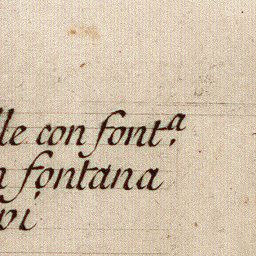 lle con font.ª
n fontana
vi